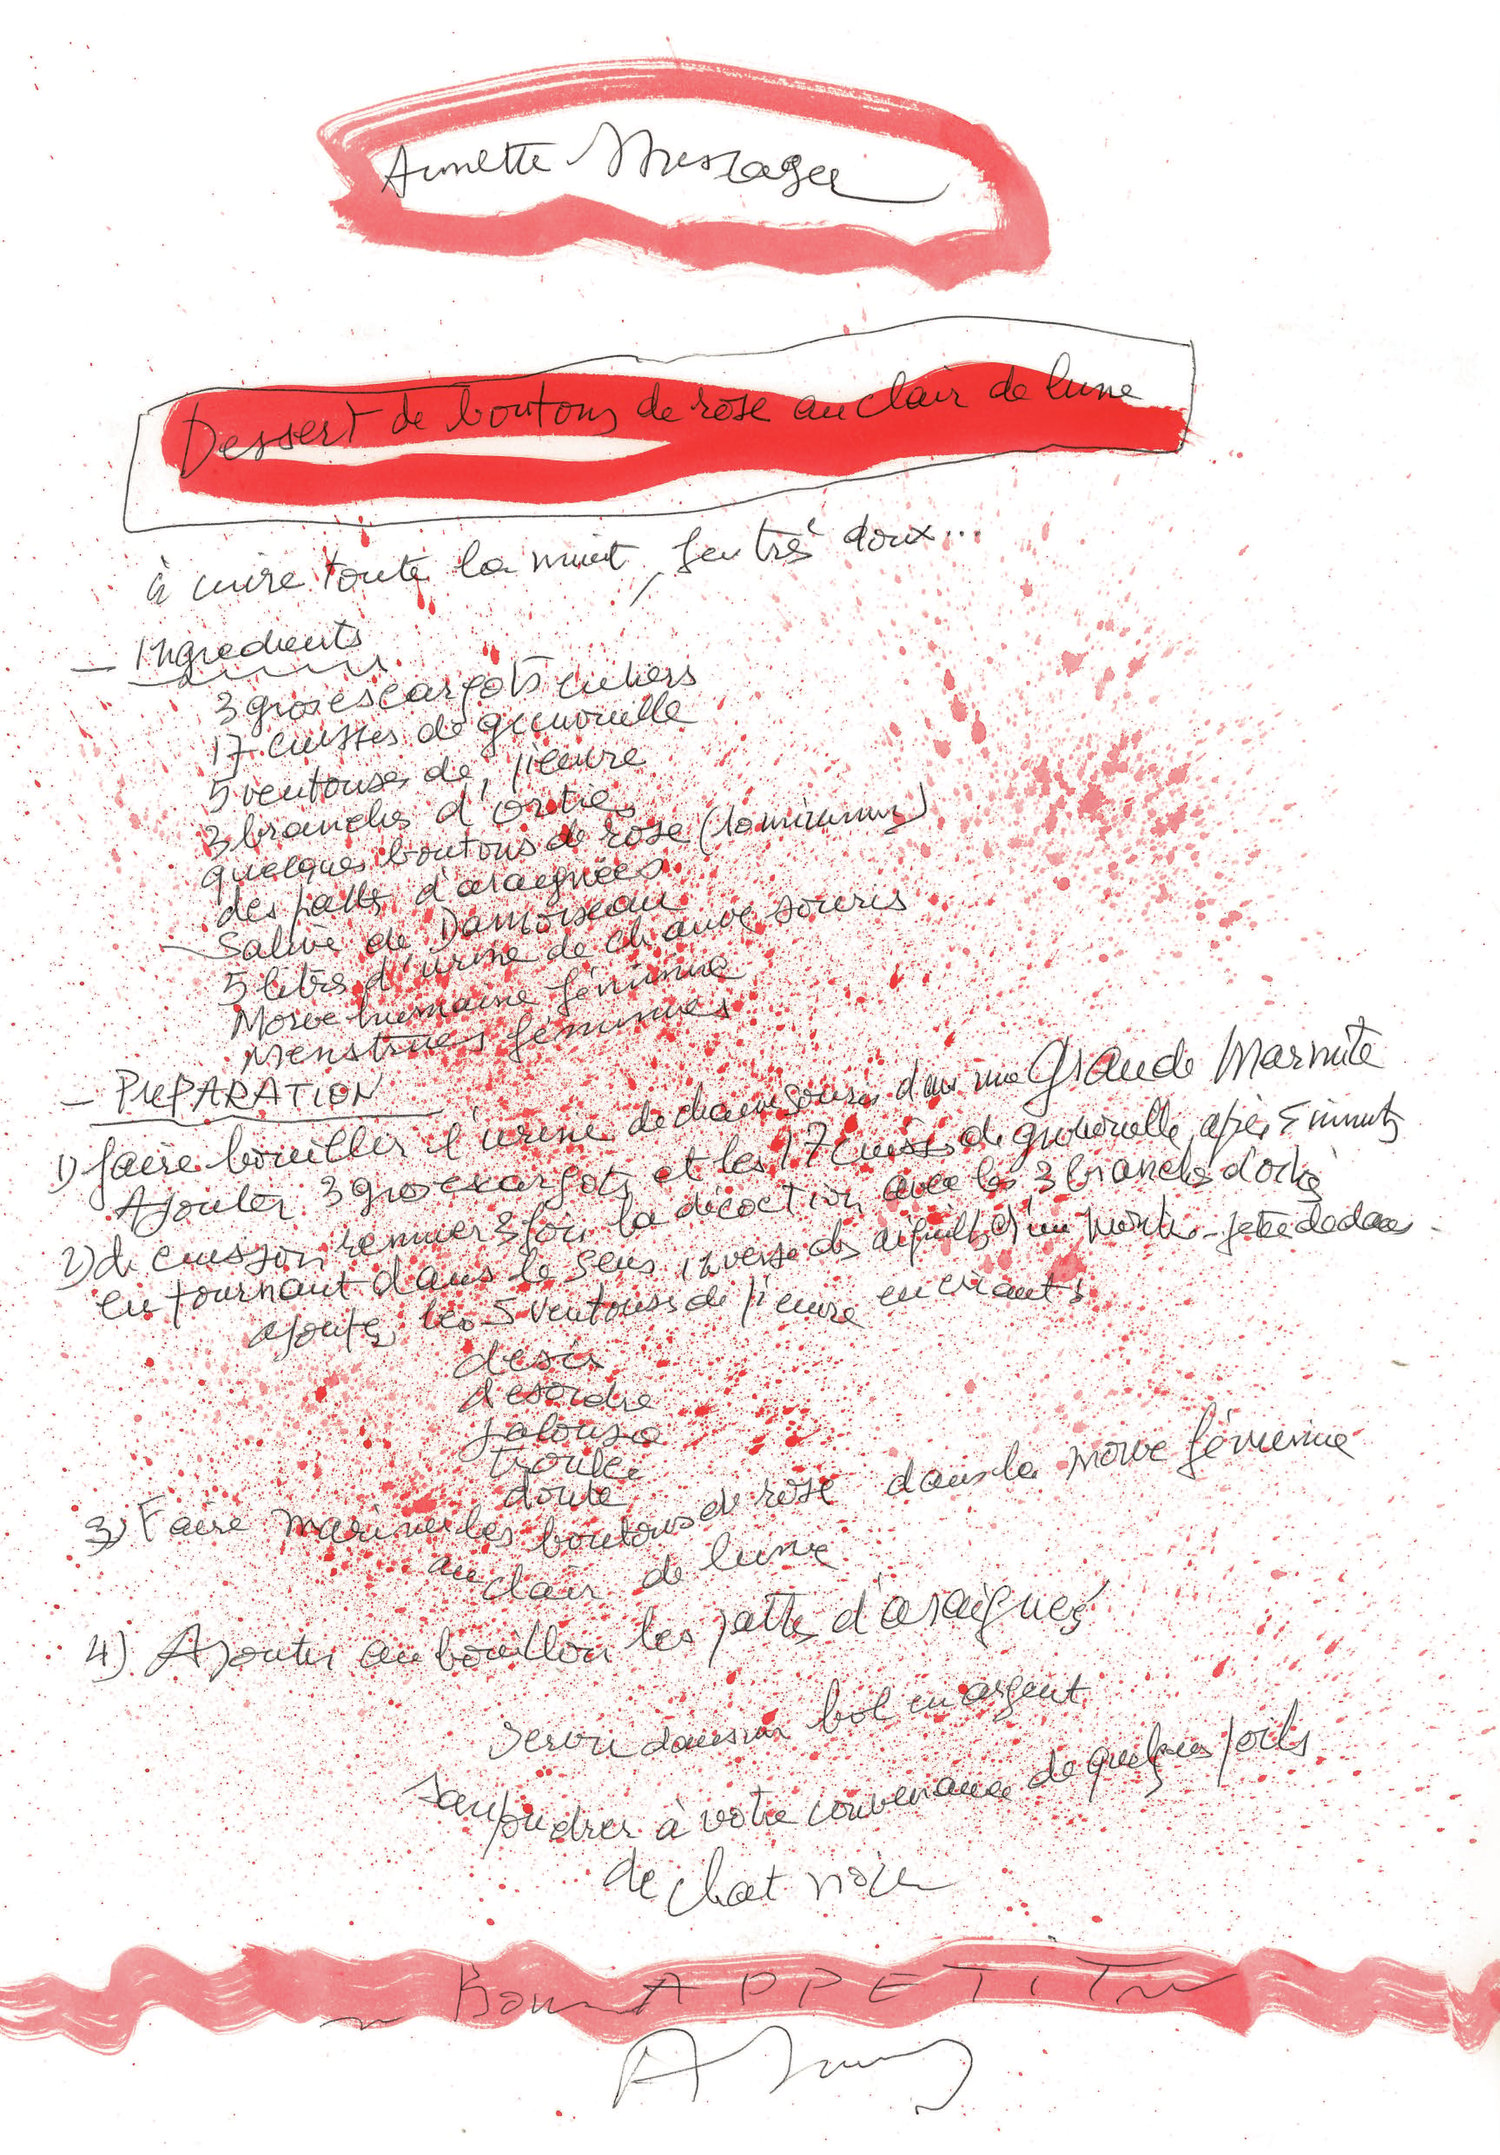 Annette Messager
Dessert de boutons de rose au clair de lune
à cuire toute la nuit, feu très doux...
— Ingredients
3 gros escargots entiers
17 cuisses de grenouille
5 ventouses de pieuvre
3 branches d'orties
quelques boutons de rose (10 minimum)
des pattes d'araignées
— Salive de Damoiseau
5 litres d'urine de chauve souris
Morve humaine féminine
Menstrues féminines
— PREPARATION
1) faire bouillir l'urine de chauve souris dans une Grande Marmite
Ajouter 3 gros escargots et les 17 cuisses de grenouille, après 5 minutes
2) de cuisson remuer 3 fois la décoction avec les 3 branches d'ortie
en tournant dans le sens inverse des aiguilles d'une montre jetée dedans -
ajoutez les 5 ventouses de pieuvre en criant :
desir
desordre
jalousie
trouble
doute
3) Faire mariner les boutons de rose dans la morve féminine
au clair de lune
4) Ajouter au bouillon les pattes d'araignées
Servir dans un bol en argent
saupoudrer à votre convenance de quelques poils
de chat noir
Bon APPETIT